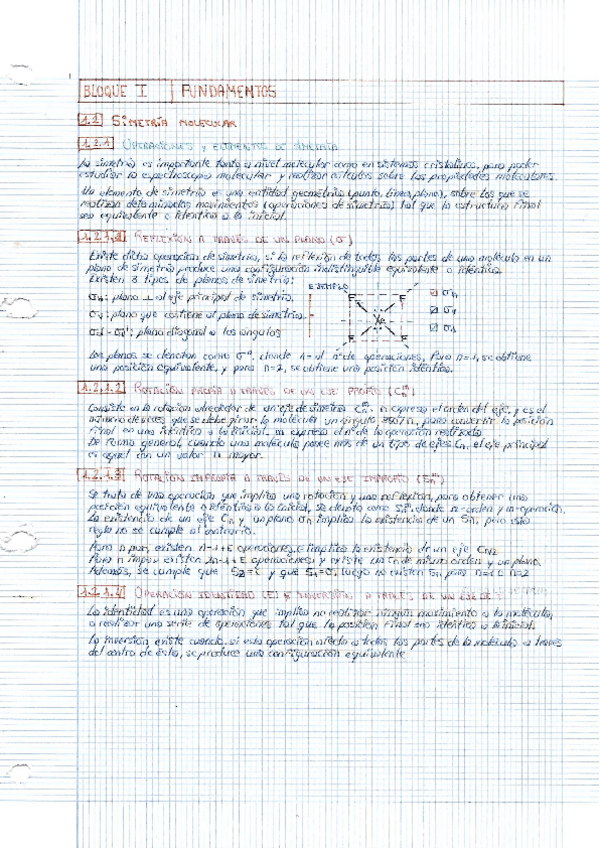 BLOQUE I | FUNDAMENTOS
1.1 SIMETRÍA MOLECULAR
1.2.1 OPERACIONES Y ELEMENTOS DE SIMETRÍA
La simetría es importante tanto a nivel molecular como en sistemas cristalinos, para poder
estudiar la espectroscopia molecular y realizar cálculos sobre las propiedades moleculares.
Un elemento de simetría es una entidad geométrica (punto, línea, plano), sobre los que se
realizan determinados movimientos (operaciones de simetría) tal que la estructura final
sea equivalente o idéntica a la inicial.
1.2.1.1 REFLEXIÓN A TRAVÉS DE UN PLANO (σ)
Existe dicha operación de simetría, si la reflexión de todas las partes de una molécula en un
plano de simetría produce una configuración indistinguible equivalente o idéntica.
Existen 3 tipos de planos de simetría: EJEMPLO
σh: plano ⊥ al eje principal de simetría.
σv: plano que contiene al plano de simetría.
plano diagonal a los ángulos
F F
Xe
F F
Los planos se denotan como σⁿ, donde n = el nº de operaciones. Para n=1, se obtiene
una posición equivalente, y para n=2, se obtiene una posición idéntica.
1.2.1.2 ROTACIÓN PROPIA A TRAVÉS DE UN EJE PROPIO (Cnᵐ)
Consiste en la rotación alrededor de un eje de simetría Cnᵐ. n expresa el orden del eje, y es el
número de veces que se debe girar la molécula un ángulo 360/n, para convertir la posición
final en una idéntica a la inicial. m expresa el nº de la operación realizada
De forma general, cuando una molécula posee más de un tipo de ejes Cn, el eje principal
es aquel con un valor n mayor.
1.2.1.3 ROTACIÓN IMPROPIA A TRAVÉS DE UN EJE IMPROPIO (Snᵐ)
Se trata de una operación que implica una rotación y una reflexión, para obtener una
posición equivalente o idéntica a la inicial, se denota como Snᵐ donde n=orden y m=operación.
La existencia de un eje Cn y un plano σh implica la existencia de un Sn, pero esta
regla no se cumple al contrario.
Para n par, existen n-1+E operaciones, e implica la existencia de un eje Cn/2
Para n impar existen 2n-1+E operaciones y existe un Cn de mismo orden y un plano.
Además, se cumple que S2=i y que S1=σ, luego no existen Sn para n=1 o n=2
1.2.1.4 OPERACIÓN IDENTIDAD (E) E INVERSIÓN A TRAVÉS DE UN EJE DE
La identidad es una operación que implica no realizar ningún movimiento a la molécula,
o realizar una serie de operaciones tal que la posición final sea idéntica a la inicial.
La inversión existe cuando, si esta operación afecta a todas las partes de la molécula a través
del centro de ésta, se produce una configuración equivalente